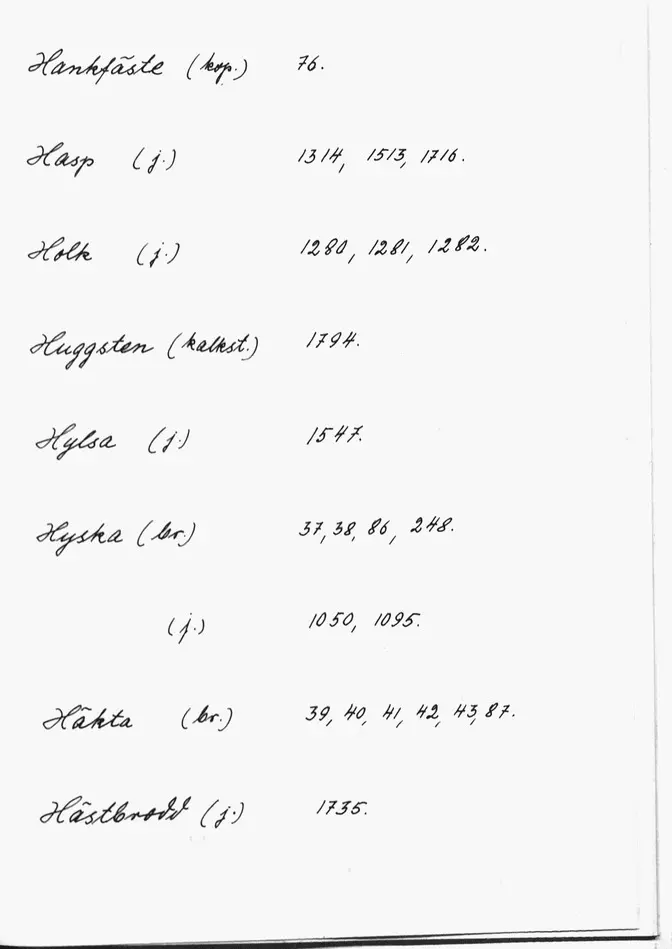 Hankfäste (kop.) 76.
Hasp (j.) 1314, 1513, 1716.
Holk (j.) 1280, 1281, 1282.
Huggsten (kalkst.) 1794.
Hylsa (j.) 1547.
Hyska (br.) 37, 38, 86, 248.
(j.) 1050, 1095.
Häkta (br.) 39, 40, 41, 42, 43, 87.
Hästbrodd (j.) 1735.